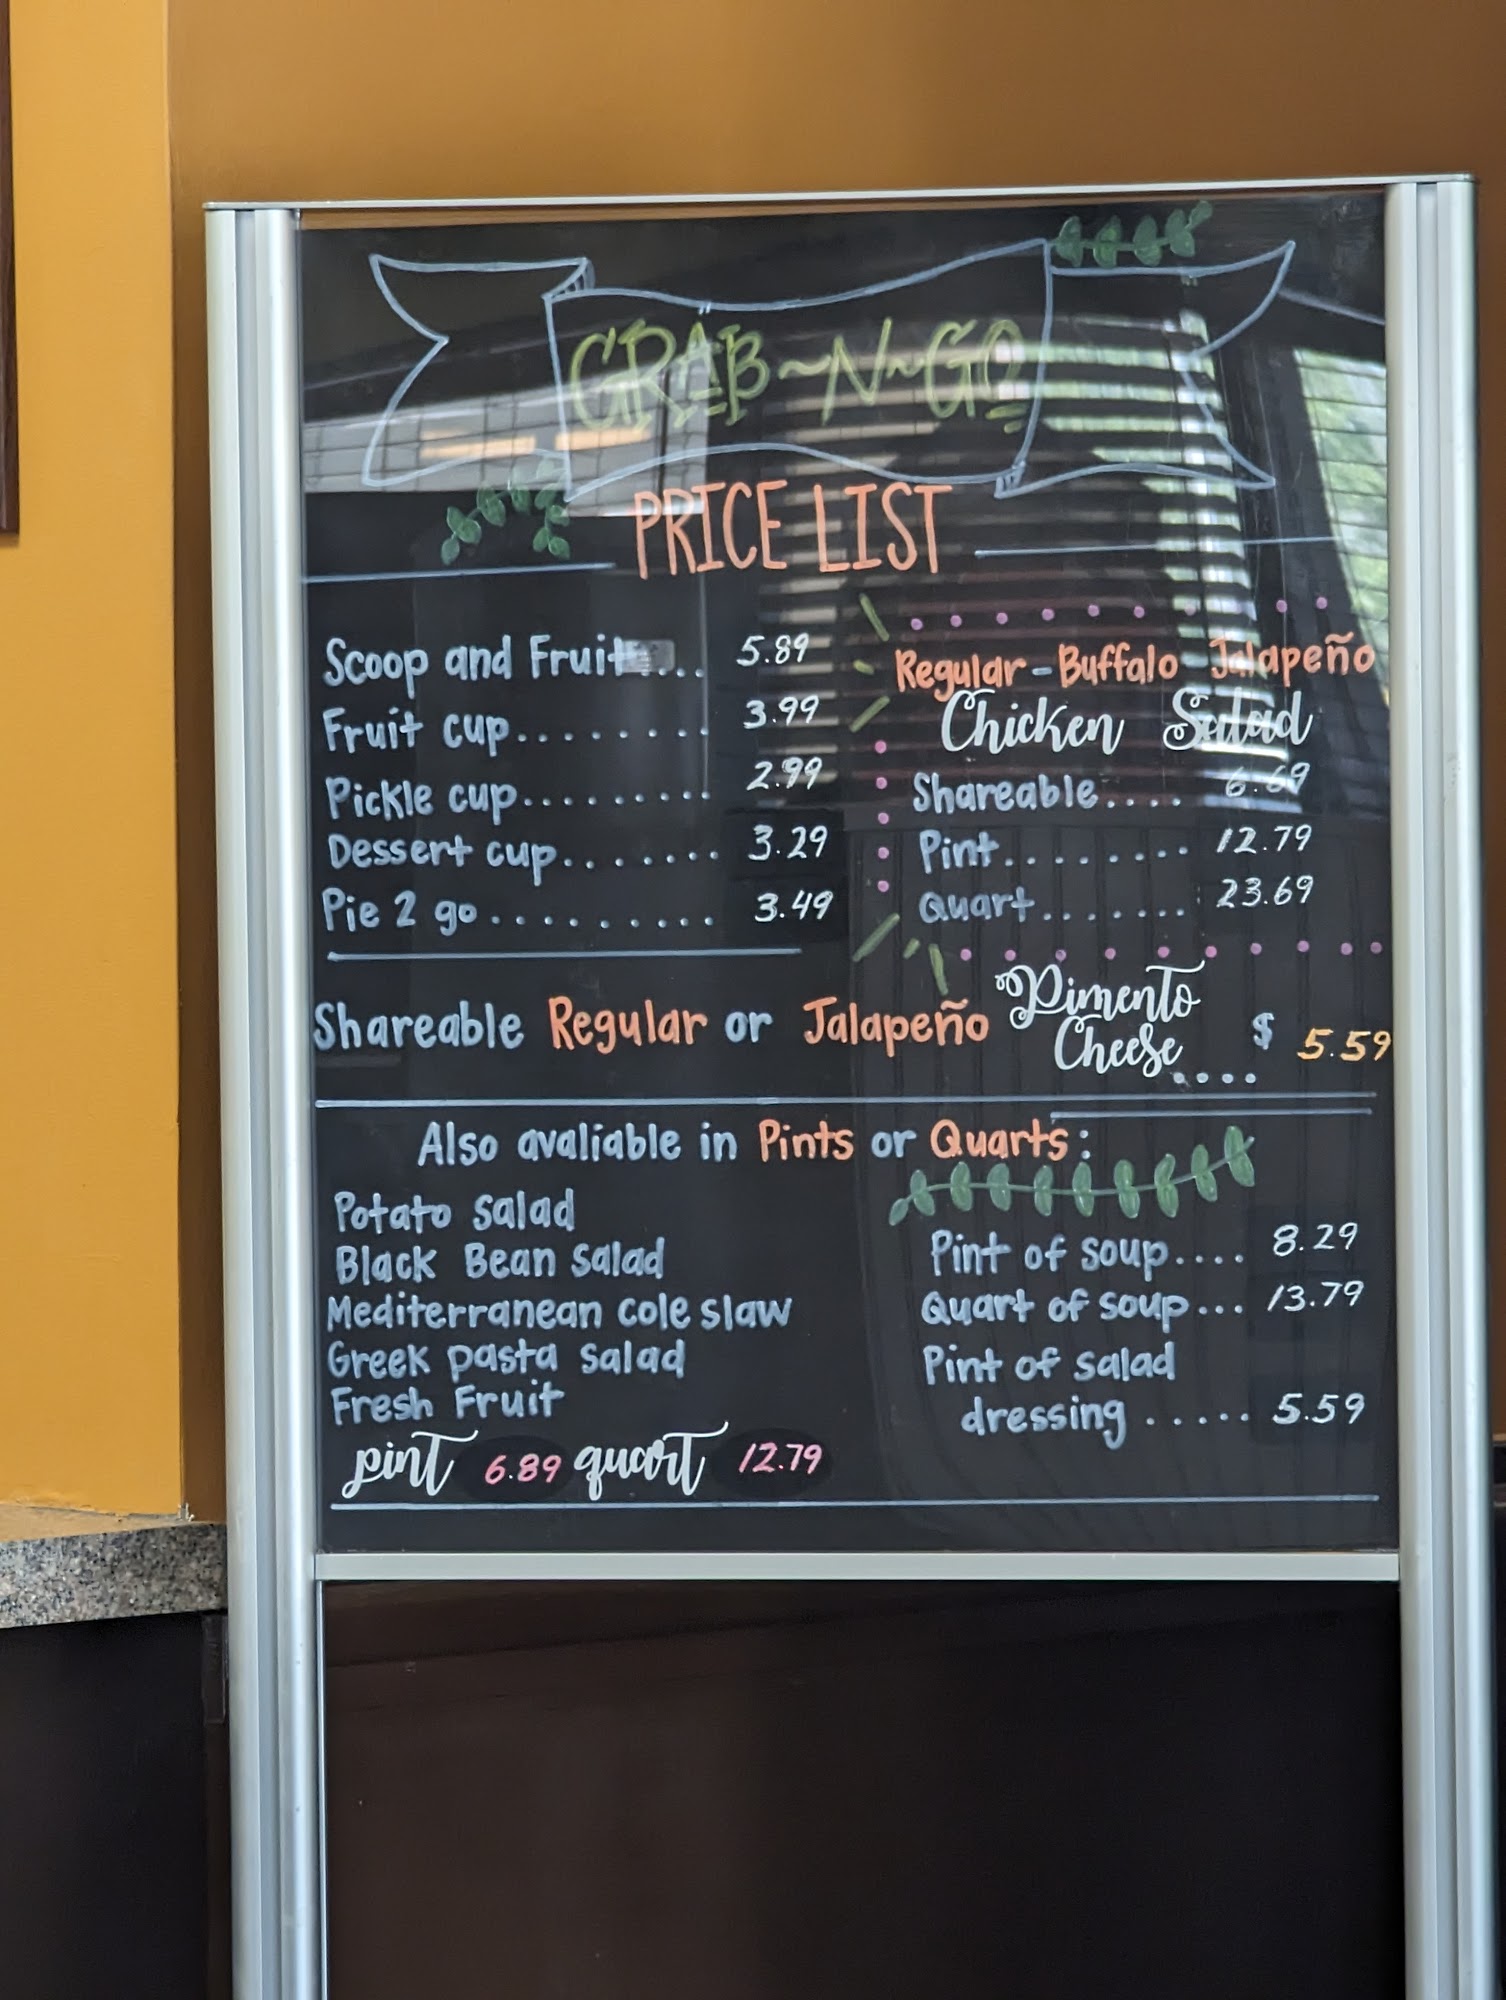 GRAB~N~GO
PRICE LIST
Scoop and Fruit.... 5.89
Fruit cup......... 3.99
Pickle cup......... 2.99
Dessert cup....... 3.29
Pie 2 go.......... 3.49
Regular - Buffalo - Jalapeño
Chicken Salad
Shareable.... 6.69
Pint........ 12.79
Quart....... 23.69
Shareable Regular or Jalapeño Pimento
Cheese.... $ 5.59
Also avaliable in Pints or Quarts:
Potato Salad
Black Bean Salad
Mediterranean cole slaw
Greek pasta salad
Fresh Fruit
pint 6.89 quart 12.79
Pint of soup.... 8.29
Quart of soup... 13.79
Pint of salad
dressing ...... 5.59